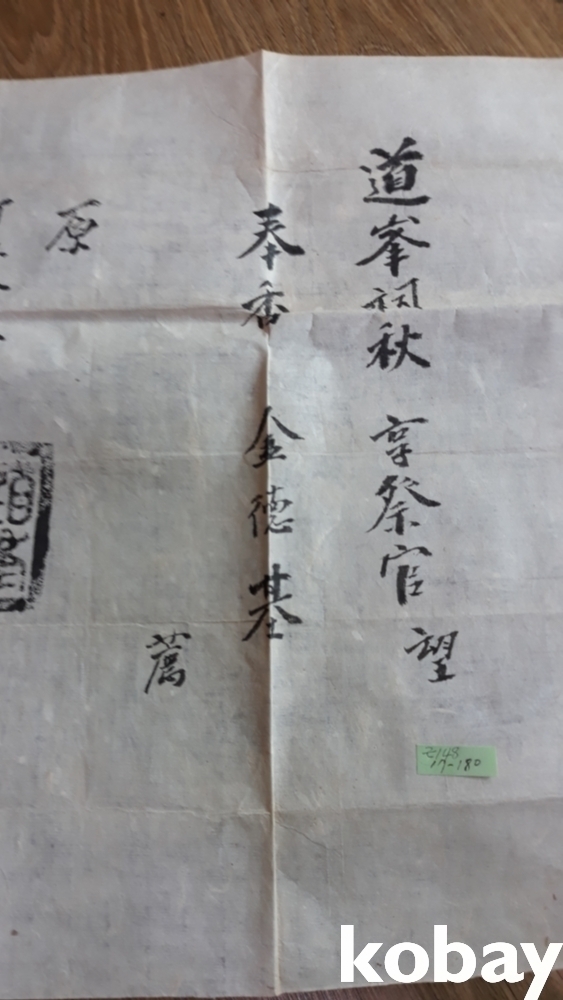 道峯祠秋享祭官望
奉香 金德基
薦
原
Z148
17-180
kobay